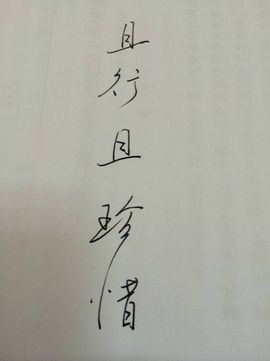 且行且珍惜